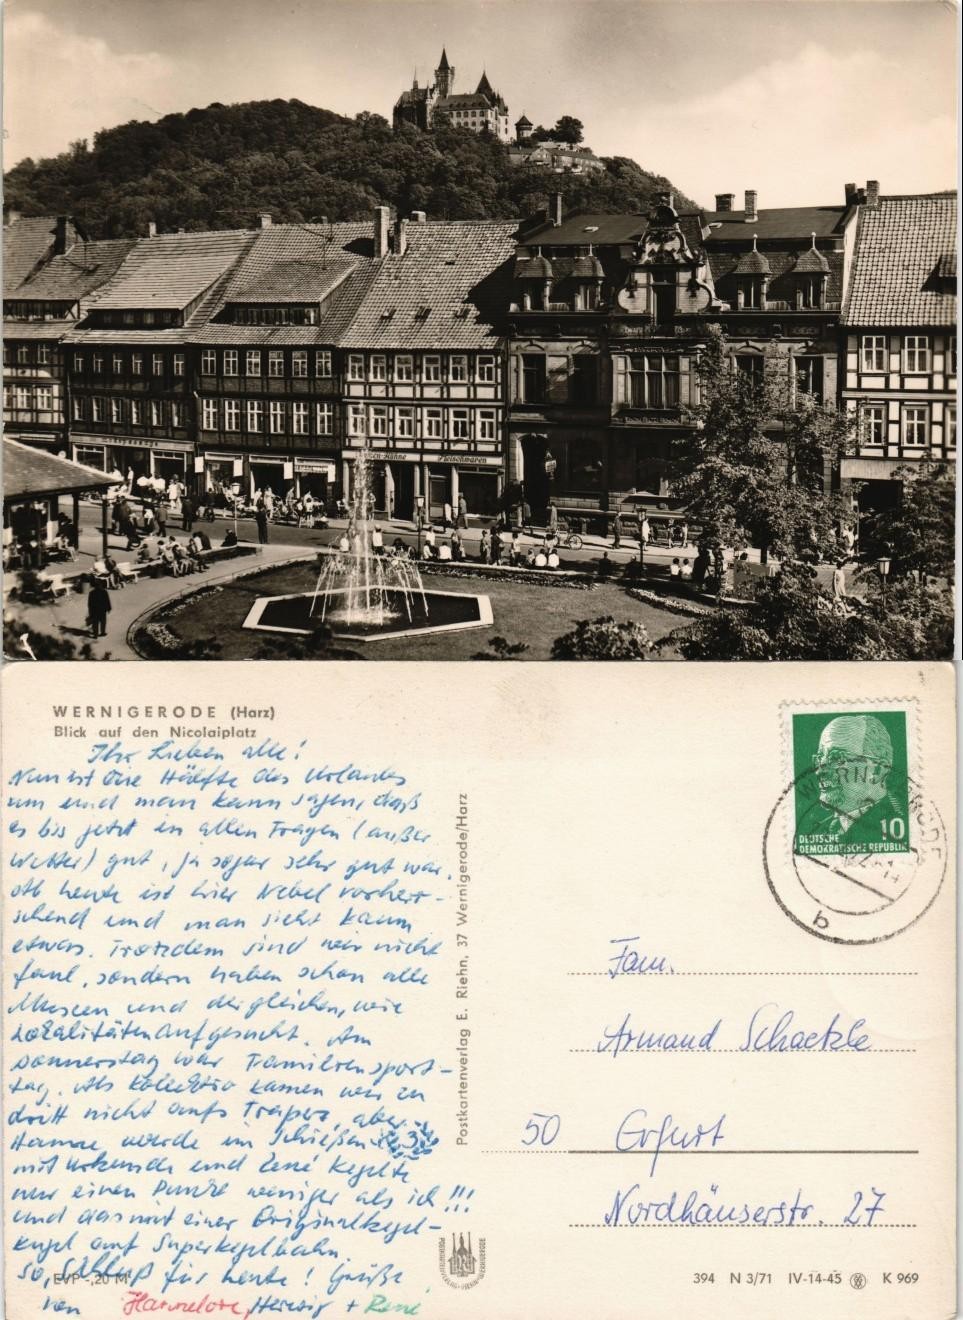 Fleischwaren
WERNIGERODE (Harz)
Blick auf den Nicolaiplatz
Ihr Lieben alle!
Nun ist die Hälfte des Urlaubs
um und man kann sagen, daß
es bis jetzt in allen Fragen (außer
Wetter) gut, ja sogar sehr gut war.
Ab heute ist hier Nebel vorherr-
schend und man sieht kaum
etwas. Trotzdem sind wir nicht
faul, sondern haben schon alle
Museen und dergleichen, wie
Lokalitäten aufgesucht. Am
Donnerstag war Familiensport-
tag. Als Kollektiv kamen wir zu
dritt nicht aufs Trapez, aber
wurde im Schießen 3.
mit Urkunde und René kegelte
nur einen Punkt weniger als ich!!!
und das mit einer Originalkegel-
kugel auf Superkegelbahn.
So, Schluß für heute! Grüße
von Hannelore, Herwig + René
EVP -,20 M
Postkartenverlag E. Riehn, 37 Wernigerode/Harz
DEUTSCHE
DEMOKRATISCHE REPUBLIK
10
WERNIGERODE
b
Fam.
Armand Schaetzle
50 Erfurt
Nordhäuserstr. 27
394 N 3/71 IV-14-45 K 969